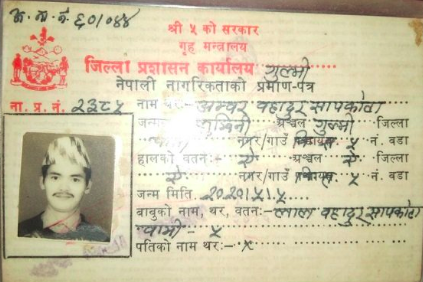 अ. ब. नं. ६०१०४४
श्री ५ को सरकार
गृह मन्त्रालय
जिल्ला प्रशासन कार्यालय गुल्मी
नेपाली नागरिकताको प्रमाण-पत्र
ना. प्र. नं. २३८५ नाम थरः- अम्बर बहादुर सापकोटा
जन्मस्थल लुम्बिनी अञ्चल गुल्मी जिल्ला
वामी नगर/गाउँ ५ नं. वडा
हालको वतनः- ऐ अञ्चल ऐ जिल्ला
ऐ नगर/गाउँ ५ नं. वडा
जन्म मिति २०२०।५।५
बाबुको नाम, थर, वतनः- लाल बहादुर सापकोटा
वामी - ५
पतिको नाम थरः- ×